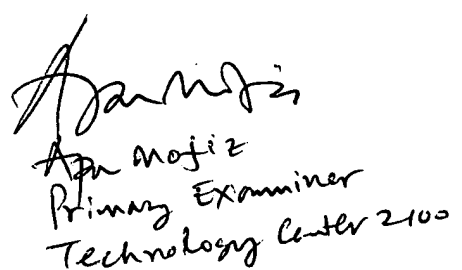 Apu Mofiz
Apu Mofiz
Primary Examiner
Technology Center 2100